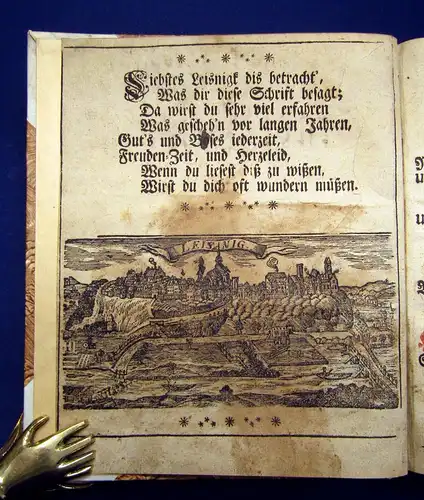 Liebstes Leisnigk dis betracht',
Was dir diese Schrift besagt;
Da wirst du sehr viel erfahren
Was gescheh'n vor langen Jahren,
Gut's und Böses iederzeit,
Freuden-Zeit, und Herzeleid,
Wenn du liesest diß zu wißen,
Wirst du dich oft wundern müßen.
LEISNIG